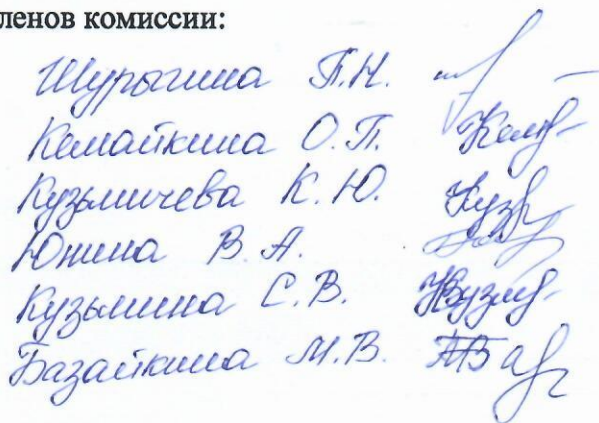 ленов комиссии:
Шурыгина Т.Н.
Кемайкина О.П.
Кузьмичева К.Ю.
Юнина В.А.
Кузьмина С.В.
Базайкина М.В.